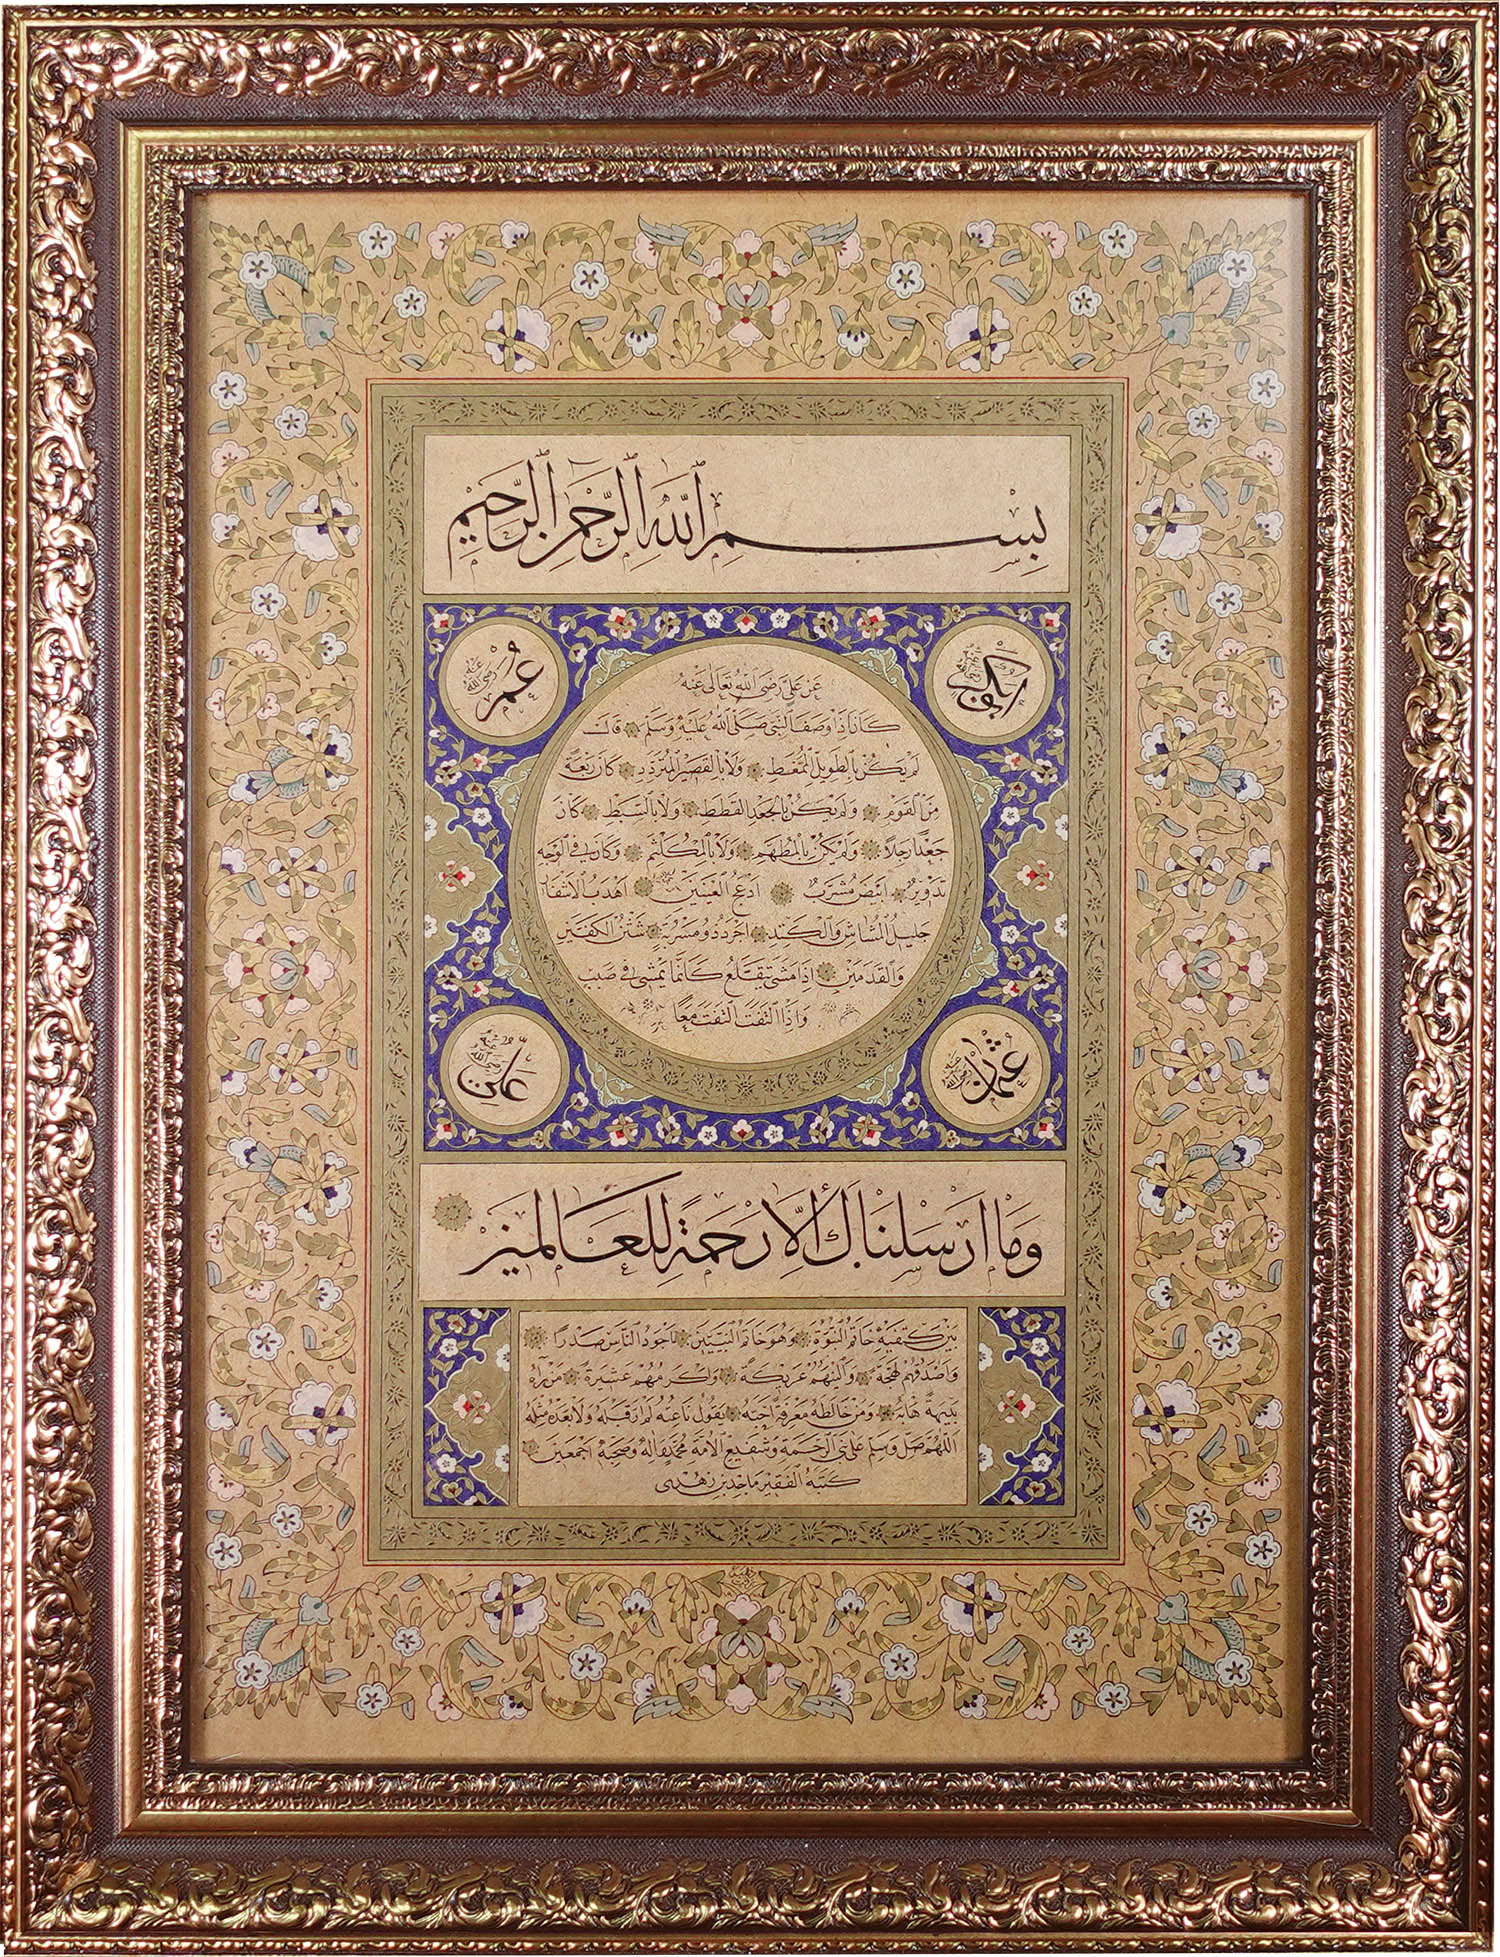 بِسْمِ اللّٰهِ الرَّحْمٰنِ الرَّحِيمِ
ابوبكر رضي الله عنه
عُمَر رضي الله عنه
عَنْ عَلِيٍّ رَضِيَ اللّٰهُ تَعَالٰى عَنْهُ
كَانَ اِذَا وَصَفَ النَّبِيَّ صَلَّى اللّٰهُ عَلَيْهِ وَسَلَّمَ قَالَ
لَمْ يَكُنْ بِالطَّوِيلِ الْمُمَّغِطِ وَلَا بِالْقَصِيرِ الْمُتَرَدِّدِ كَانَ رَبْعَةً
مِنَ الْقَوْمِ وَلَمْ يَكُنْ بِالْجَعْدِ الْقَطَطِ وَلَا بِالسَّبِطِ كَانَ
جَعْدًا رَجِلًا وَلَمْ يَكُنْ بِالْمُطَهَّمِ وَلَا بِالْمُكَلْثَمِ وَكَانَ فِي الْوَجْهِ
تَدْوِيرٌ اَبْيَضُ مُشْرَبٌ اَدْعَجُ الْعَيْنَيْنِ اَهْدَبُ الْاَشْفَارِ
جَلِيلُ الْمُشَاشِ وَالْكَتَدِ اَجْرَدُ ذُو مَسْرُبَةٍ شَثْنُ الْكَفَّيْنِ
وَالْقَدَمَيْنِ اِذَا مَشٰى يَتَقَلَّعُ كَاَنَّمَا يَمْشِي فِي صَبَبٍ
وَاِذَا الْتَفَتَ الْتَفَتَ مَعًا
عُثْمَان رضي الله عنه
عَلِيّ رضي الله عنه
وَمَا اَرْسَلْنَاكَ اِلَّا رَحْمَةً لِلْعَالَمِينَ
بَيْنَ كَتِفَيْهِ خَاتَمُ النُّبُوَّةِ وَهُوَ خَاتَمُ النَّبِيِّينَ اَجْوَدُ النَّاسِ صَدْرًا
وَاَصْدَقُهُمْ لَهْجَةً وَاَلْيَنُهُمْ عَرِيكَةً وَاَكْرَمُهُمْ عَشِيرَةً مَنْ رَآهُ
بَدِيهَةً هَابَهُ وَمَنْ خَالَطَهُ مَعْرِفَةً اَحَبَّهُ يَقُولُ نَاعِتُهُ لَمْ اَرَ قَبْلَهُ وَلَا بَعْدَهُ مِثْلَهُ
اَللّٰهُمَّ صَلِّ وَسَلِّمْ عَلٰى نَبِيِّ الرَّحْمَةِ وَشَفِيعِ الْاُمَّةِ مُحَمَّدٍ وَآلِهِ وَصَحْبِهِ اَجْمَعِينَ
كَتَبَهُ الْفَقِيرُ مَاجِد بِن زُهْدِي